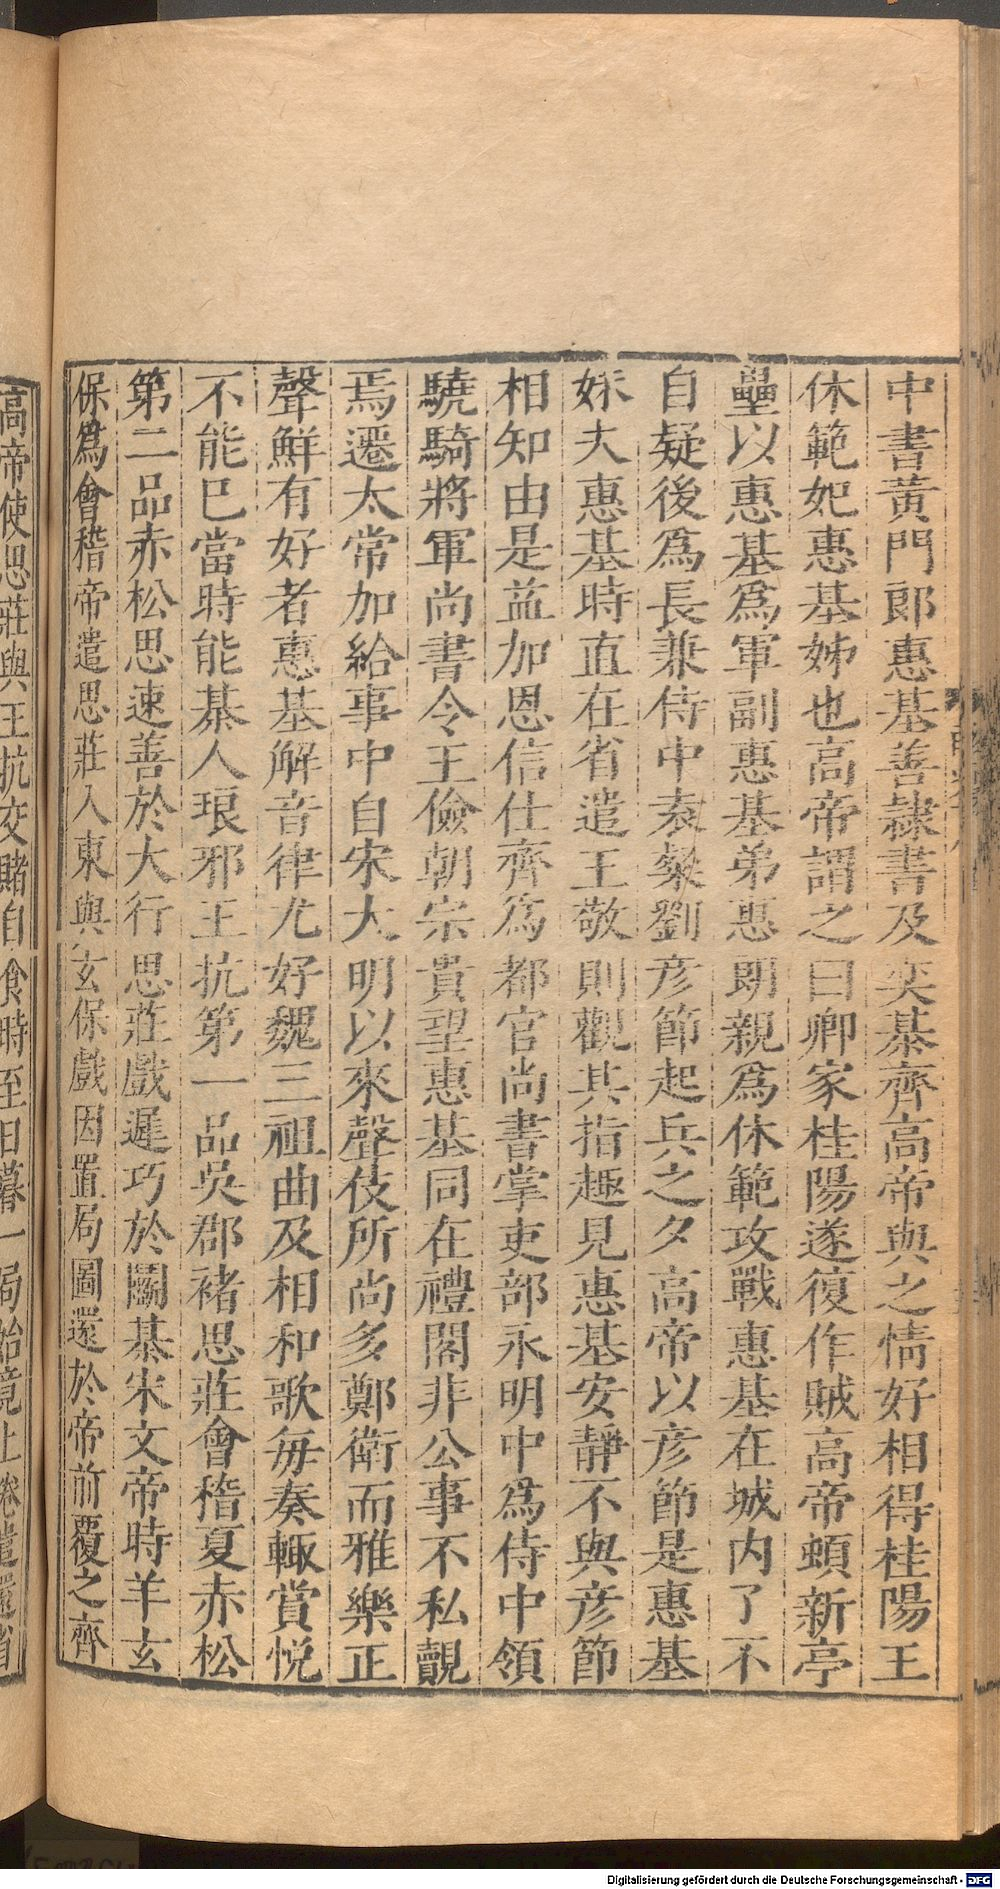 中書黃門郎惠基善隷書及奕棊齊高帝與之情好相得桂陽王
休範妃惠基姊也高帝謂之曰卿家桂陽遂復作賊高帝頓新亭
壘以惠基爲軍副惠基弟惠朗親爲休範攻戰惠基在城内了不
自疑後爲長兼侍中袁粲劉彥節起兵之夕高帝以彥節是惠基
妹夫惠基時直在省遣王敬則觀其指趣見惠基安靜不與彥節
相知由是益加恩信仕齊爲都官尚書掌吏部永明中爲侍中領
驍騎將軍尚書令王儉朝宗貴望惠基同在禮閣非公事不私覿
焉遷太常加給事中自宋大明以來聲伎所尚多鄭衛而雅樂正
聲鮮有好者惠基解音律尤好魏三祖曲及相和歌每奏輒賞悅
不能已當時能棊人琅邪王抗第一品吳郡褚思莊會稽夏赤松
第二品赤松思速善於大行思莊戲遲巧於鬭棊宋文帝時羊玄
保爲會稽帝遣思莊入東與玄保戲因置局圖還於帝前覆之齊
高帝使思莊與王抗交賭自食時至日暮一局始竟上倦遣還省
Digitalisierung gefördert durch die Deutsche Forschungsgemeinschaft - DFG